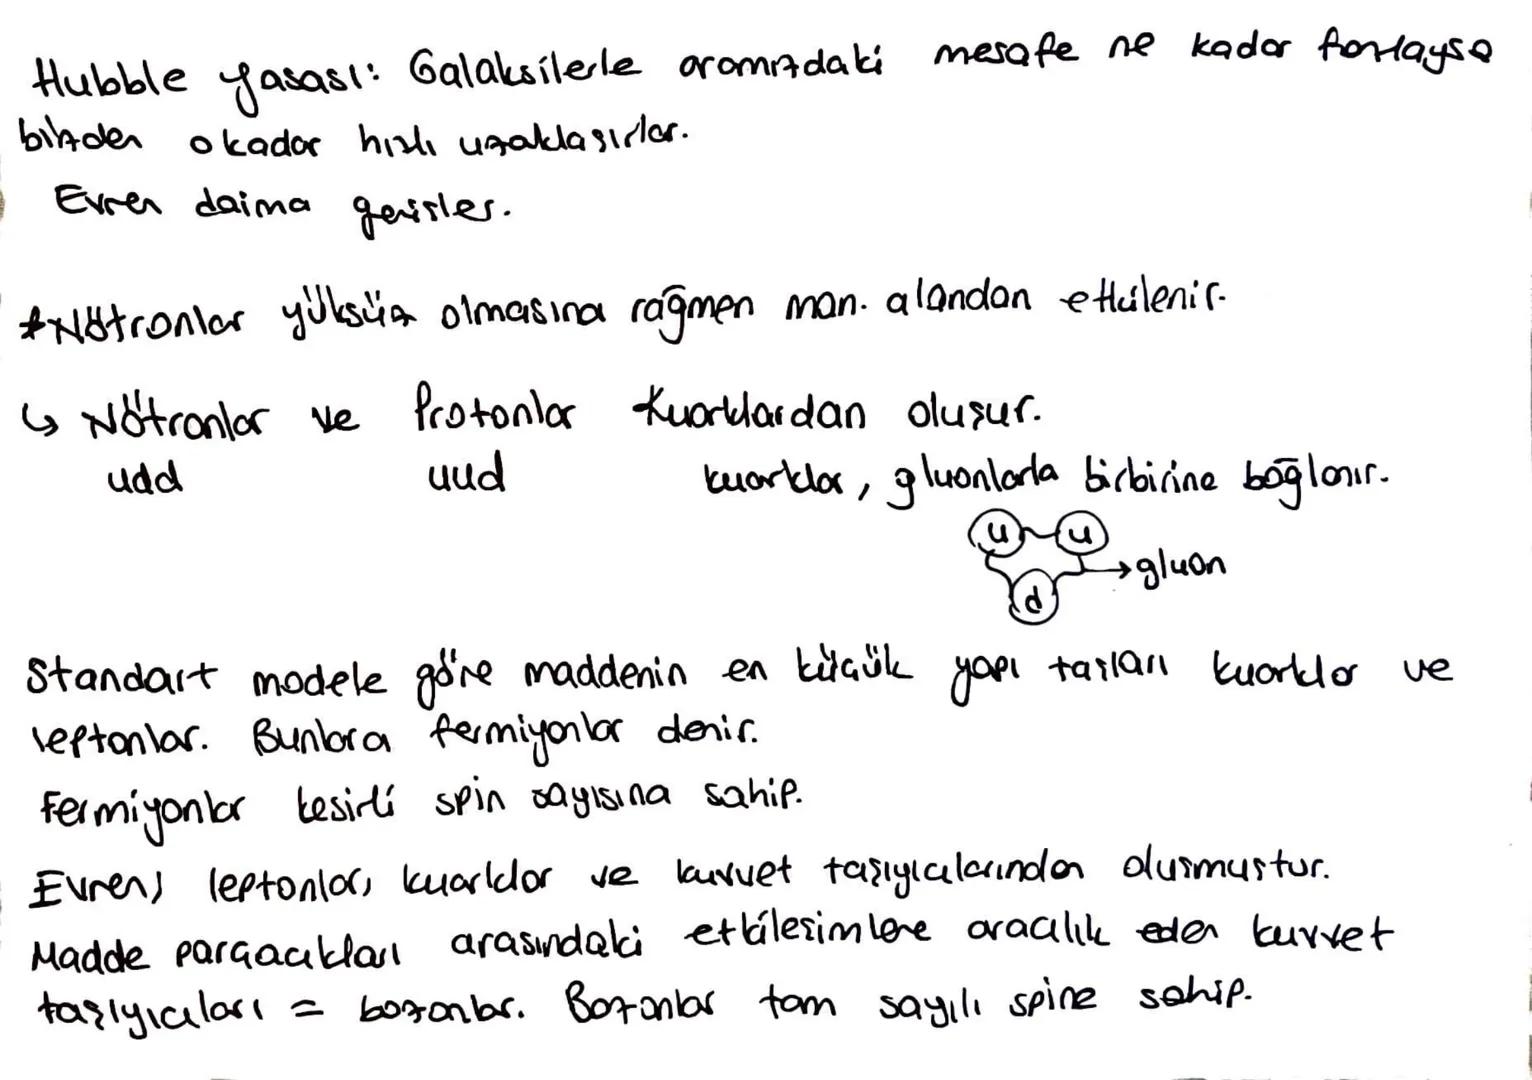 Hubble yasası: Galaksilerle aramızdaki mesafe ne kadar fazlaysa
bizden o kadar hızlı uzaklaşırlar.
Evren daima genişler.
*Nötronlar yüksüz olmasına rağmen man. alandan etkilenir.
↳ Nötronlar ve Protonlar Kuarklardan oluşur.
udd uud kuarklar, gluonlarla birbirine bağlanır.
u u
→gluon
d
Standart modele göre maddenin en küçük yapı taşları kuarklar ve
leptonlar. Bunlara fermiyonlar denir.
Fermiyonlar kesirli spin sayısına sahip.
Evren; leptonlar, kuarklar ve kuvvet taşıyıcılarından oluşmuştur.
Madde parçacıkları arasındaki etkileşimlere aracılık eden kuvvet
taşıyıcıları = bozonlar. Bozonlar tam sayılı spine sahip.